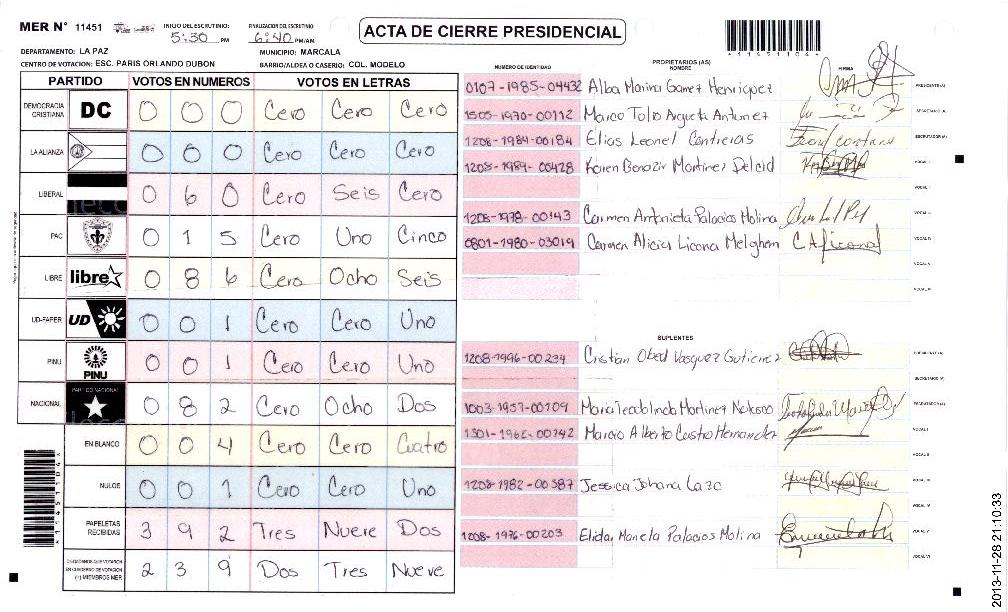 MER N° 11451
INICIO DEL ESCRUTINIO:
5:30 PM
FINALIZACION DEL ESCRUTINIO
6:40 PM/AM
ACTA DE CIERRE PRESIDENCIAL
DEPARTAMENTO: LA PAZ
MUNICIPIO: MARCALA
CENTRO DE VOTACION: ESC. PARIS ORLANDO DUBON
BARRIO/ALDEA O CASERIO: COL. MODELO
PARTIDO VOTOS EN NUMEROS VOTOS EN LETRAS
DEMOCRACIA CRISTIANA DC 0 0 0 Cero Cero Cero
LA ALIANZA 0 0 0 Cero Cero Cero
LIBERAL 0 6 0 Cero Seis Cero
PAC 0 1 5 Cero Uno Cinco
LIBRE libre 0 8 6 Cero Ocho Seis
UD-FAPER UD 0 0 1 Cero Cero Uno
PINU PINU 0 0 1 Cero Cero Uno
NACIONAL PARTIDO NACIONAL 0 8 2 Cero Ocho Dos
EN BLANCO 0 0 4 Cero Cero Cuatro
NULOS 0 0 1 Cero Cero Uno
PAPELETAS RECIBIDAS 3 9 2 Tres Nueve Dos
CIUDADANOS QUE VOTARON EN CUADERNO DE VOTACION (+) MIEMBROS MER 2 3 9 Dos Tres Nueve
PROPIETARIOS (AS)
NUMERO DE IDENTIDAD NOMBRE FIRMA
0107-1985-04432 Alba Marina Gamez Henriquez PRESIDENTE(A)
1505-1970-00112 Marco Tulio Argueta Antunez SECRETARIO(A)
1208-1984-00184 Elias Leonel Contreras ESCRUTADOR(A)
1208-1989-00428 Karen Benazir Martinez Delcid VOCAL I
VOCAL II
1208-1978-00143 Carmen Antonieta Palacios Molina VOCAL III
0801-1980-03019 Carmen Alicia Licona Melghem VOCAL IV
VOCAL V
VOCAL VI
SUPLENTES
1208-1996-00234 Cristian Obed Vasquez Gutierrez PRESIDENTE(A)
SECRETARIO(A)
1003-1957-00109 Maria Teodolinda Martinez ESCRUTADOR(A)
VOCAL I
Marcio Alberto Castro Hernandez
VOCAL II
1208-1982-00387 Jessica Johana Lazo VOCAL III
VOCAL IV
1208-1976-00203 Elida Mariela Palacios Molina VOCAL V
VOCAL VI
2013-11-28 21:10:33